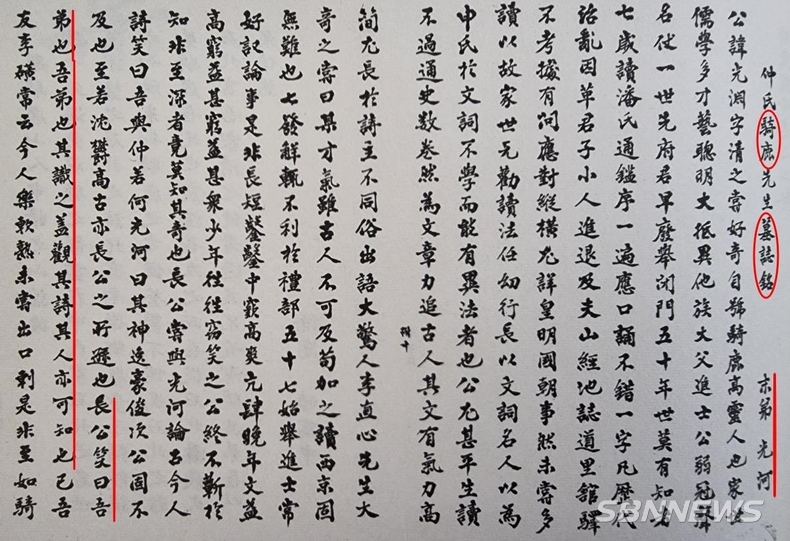 仲氏騎鹿先生墓誌銘 末弟 光河
公諱光淵字清之嘗好奇自號騎鹿高靈人也家法
儒學多才藝聰明大抵異他族大父進士公弱冠
名仕一世先府君早廢舉閉門五十年世莫有知者
七歲讀潘氏通鑑序一遍應口誦不錯一字凡歷代
治亂因革君子小人進退及夫山經地誌道里館驛
不考據有問應對縱橫尤詳皇明國朝事然未嘗多
讀以故家世无勸讀法任幼行長以文詞名人以為
申氏於文詞不學而能有異法者也公尤甚平生讀
不過通史數卷然為文章力追古人其文有氣力高
簡尤長於詩主不同俗出語大驚人李直心先生大
奇之嘗曰某才氣雖古人不可及苟加之讀西京固
無難也七發解輒不利於禮部五十七始舉進士常
好論事是非長短鑿鑿中窾高爽亢肆晚年文益
高窮益甚窮益甚眾少年往往竊笑之公終不靳於
知非至深者竟莫知其奇也長公嘗與光河論古今人
詩笑曰吾與仲若何光河曰其神逸豪俊次公固不
及也至若沈鬱高古亦長公之所遜也長公笑曰吾
弟也吾弟也其識之盖觀其詩其人亦可知也已吾
友李磺常云今人樂軟熟未嘗出口剌是非至如騎
SBNNEWS